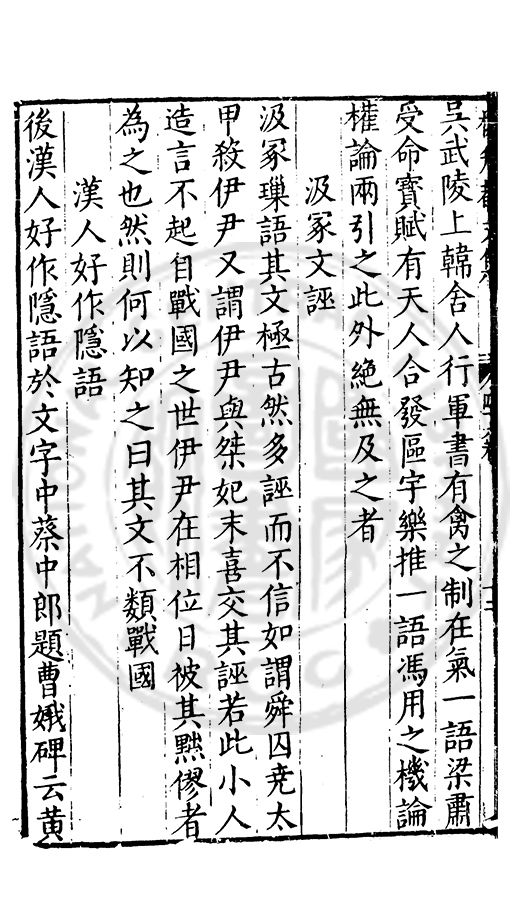 吳武陵上韓舍人行軍書有禽之制在氣一語梁肅
受命寶賦有天人合發區宇樂推一語馮用之機論
權論兩引之此外絶無及之者
汲冡文誣
汲冡璅語其文極古然多誣而不信如謂舜囚尭太
甲殺伊尹又謂伊尹與桀妃末喜交其誣若此小人
造言不起自戰國之世伊尹在相位日被其黙僇者
為之也然則何以知之曰其文不類戰國
漢人好作隱語
後漢人好作隱語於文字中蔡中郎題曹娥碑云黄